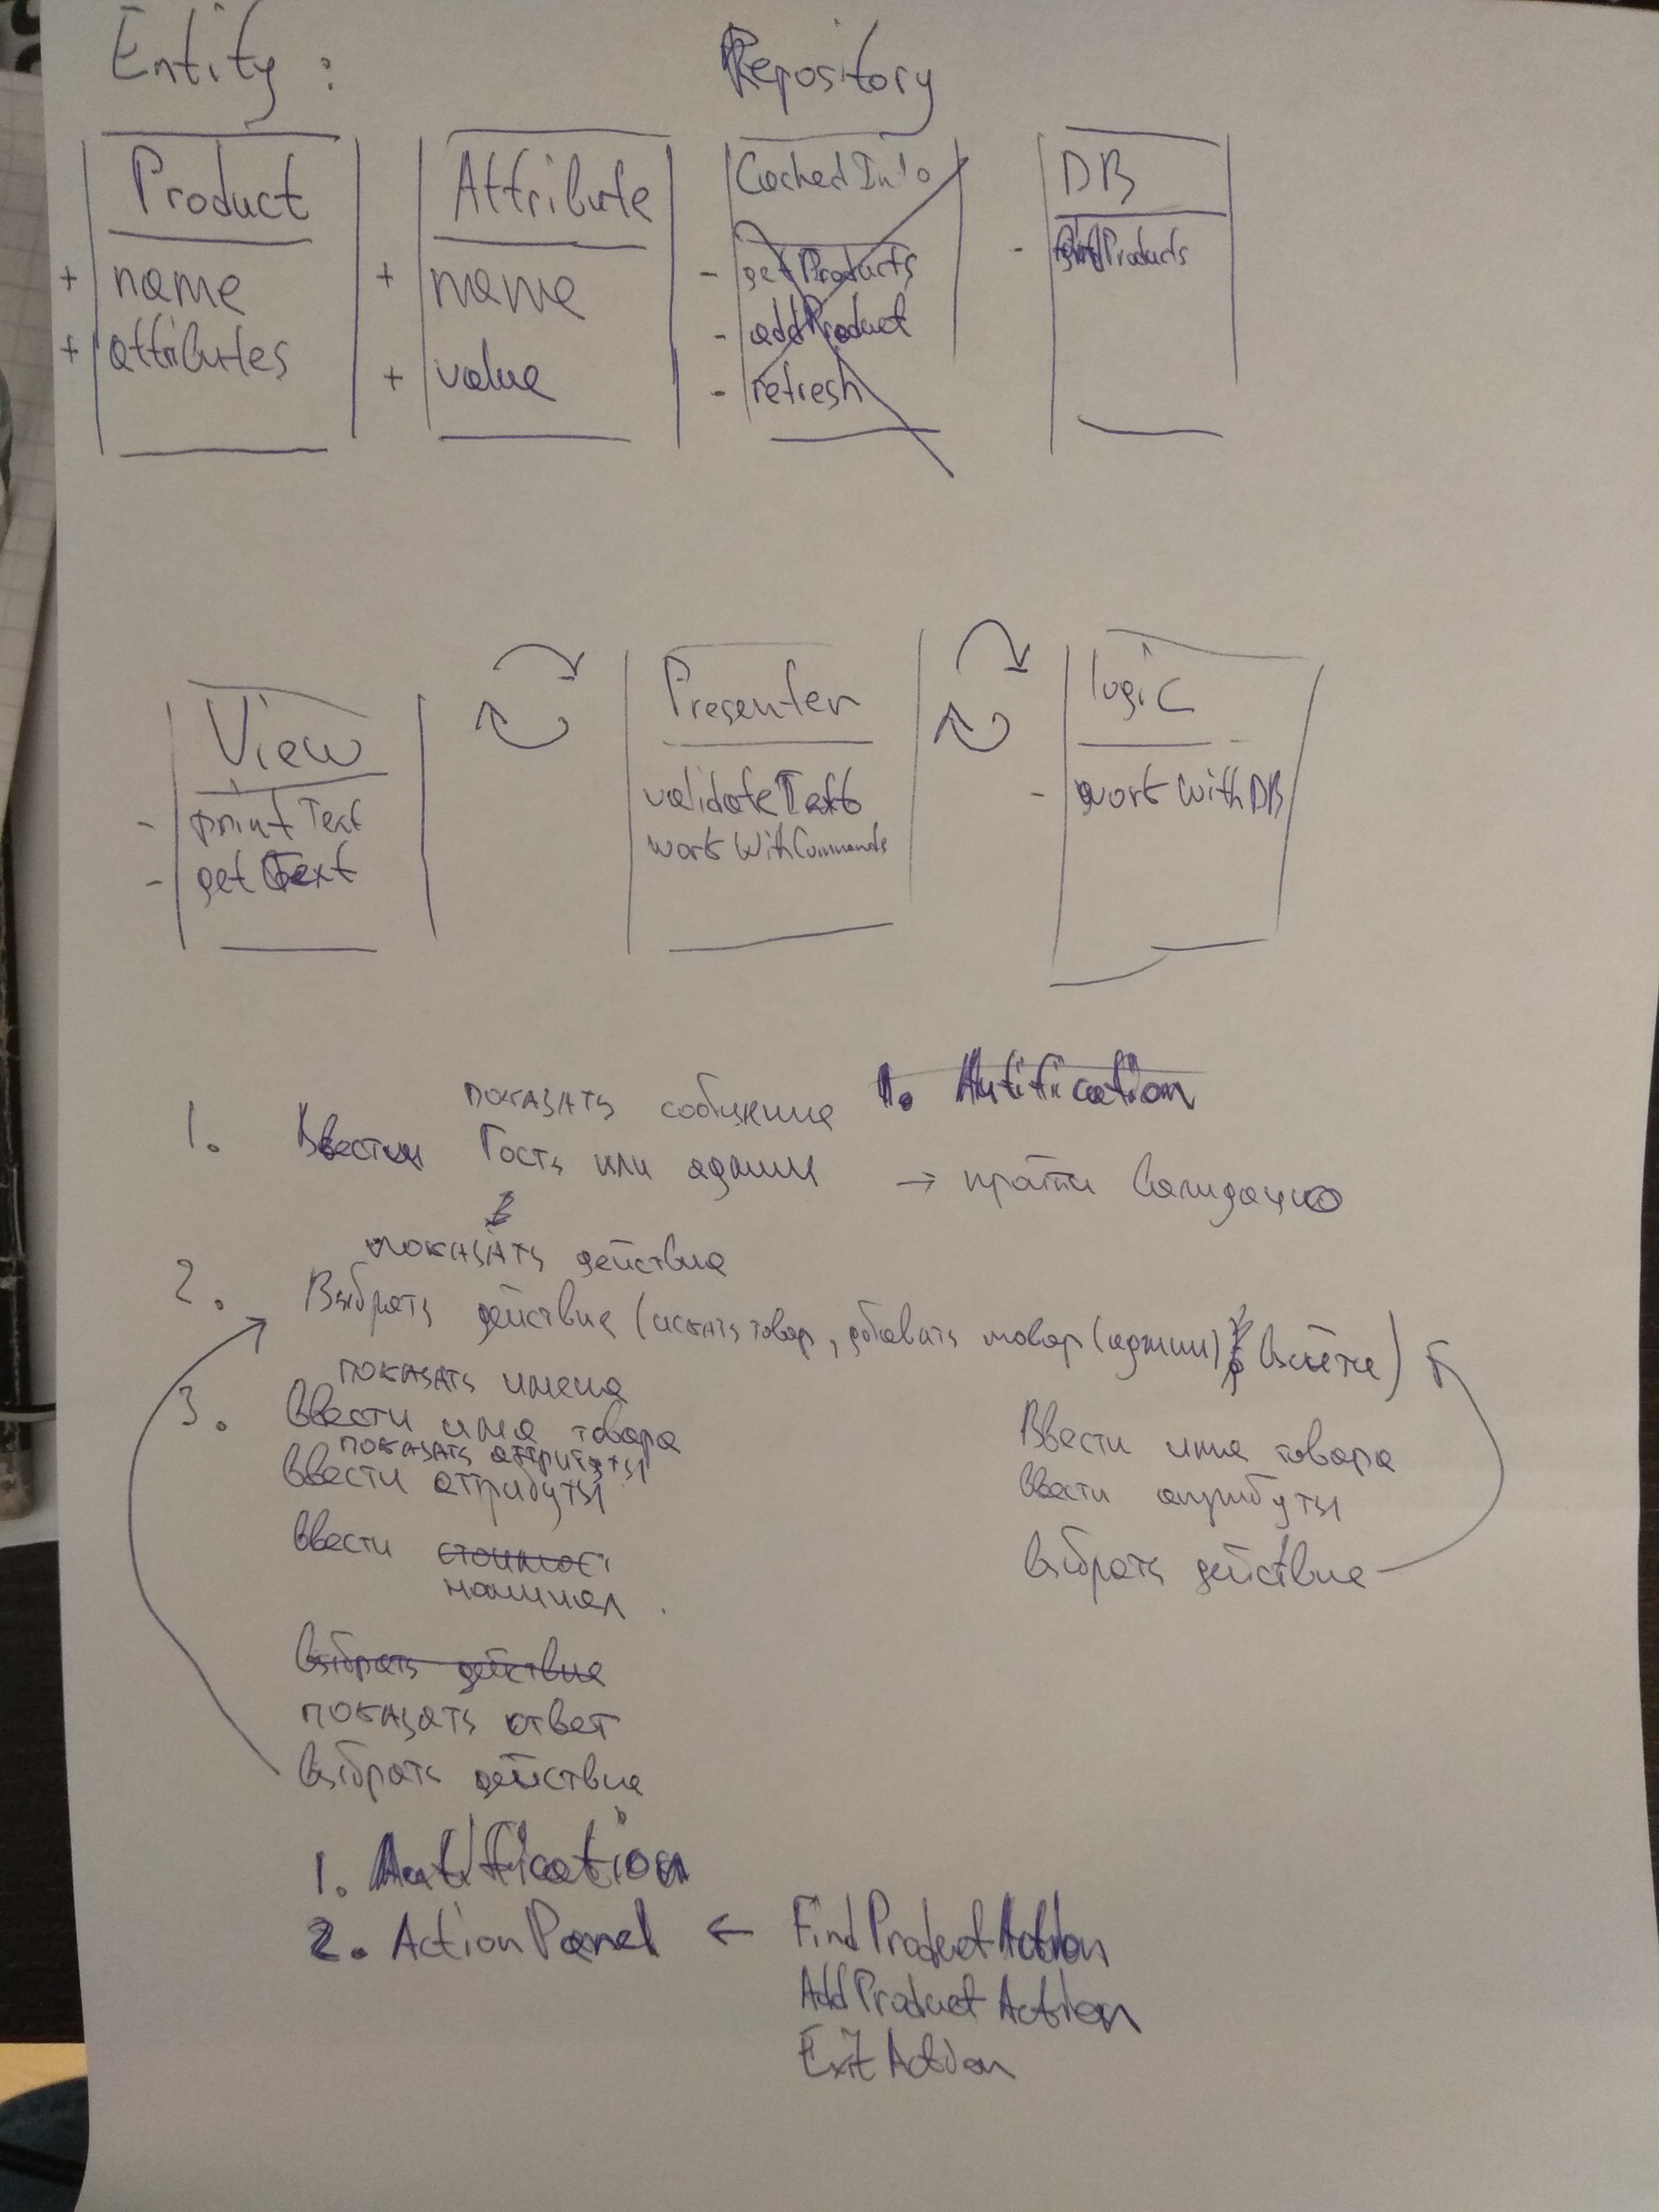 Entity :
Repository
Product
+ name
+ attributes
Attribute
+ name
+ value
CachedInfo
- getProducts
- addProduct
- refresh
DB
- Products
View
- printText
- getText
Presenter
validateText
workWithCommands
logic
- workWithDB
показать сообщение
1. Autification
1. Ввести Гость или админ → пройти валидацию
показать действия
2. Выбрать действие (искать товар, добавить товар (админ) выйти)
показать имена
3. Ввести имя товара
показать аттрибуты
Ввести атрибуты
Ввести стоимост
номинал
выбрать действие
показать ответ
выбрать действие
Ввести имя товара
Ввести атрибуты
выбрать действие
1. Autification
2. ActionPanel ← FindProductAction
AddProductAction
ExitAction